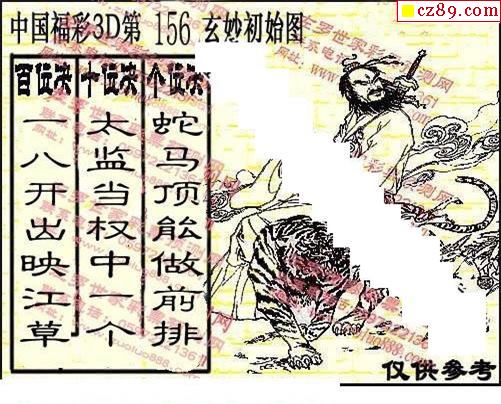 cz89.com
中国福彩3D第 156 玄妙初始图
百位决 十位决 个位决
一八开出映江草
太监当权中一个
蛇马顶能做前排
仅供参考